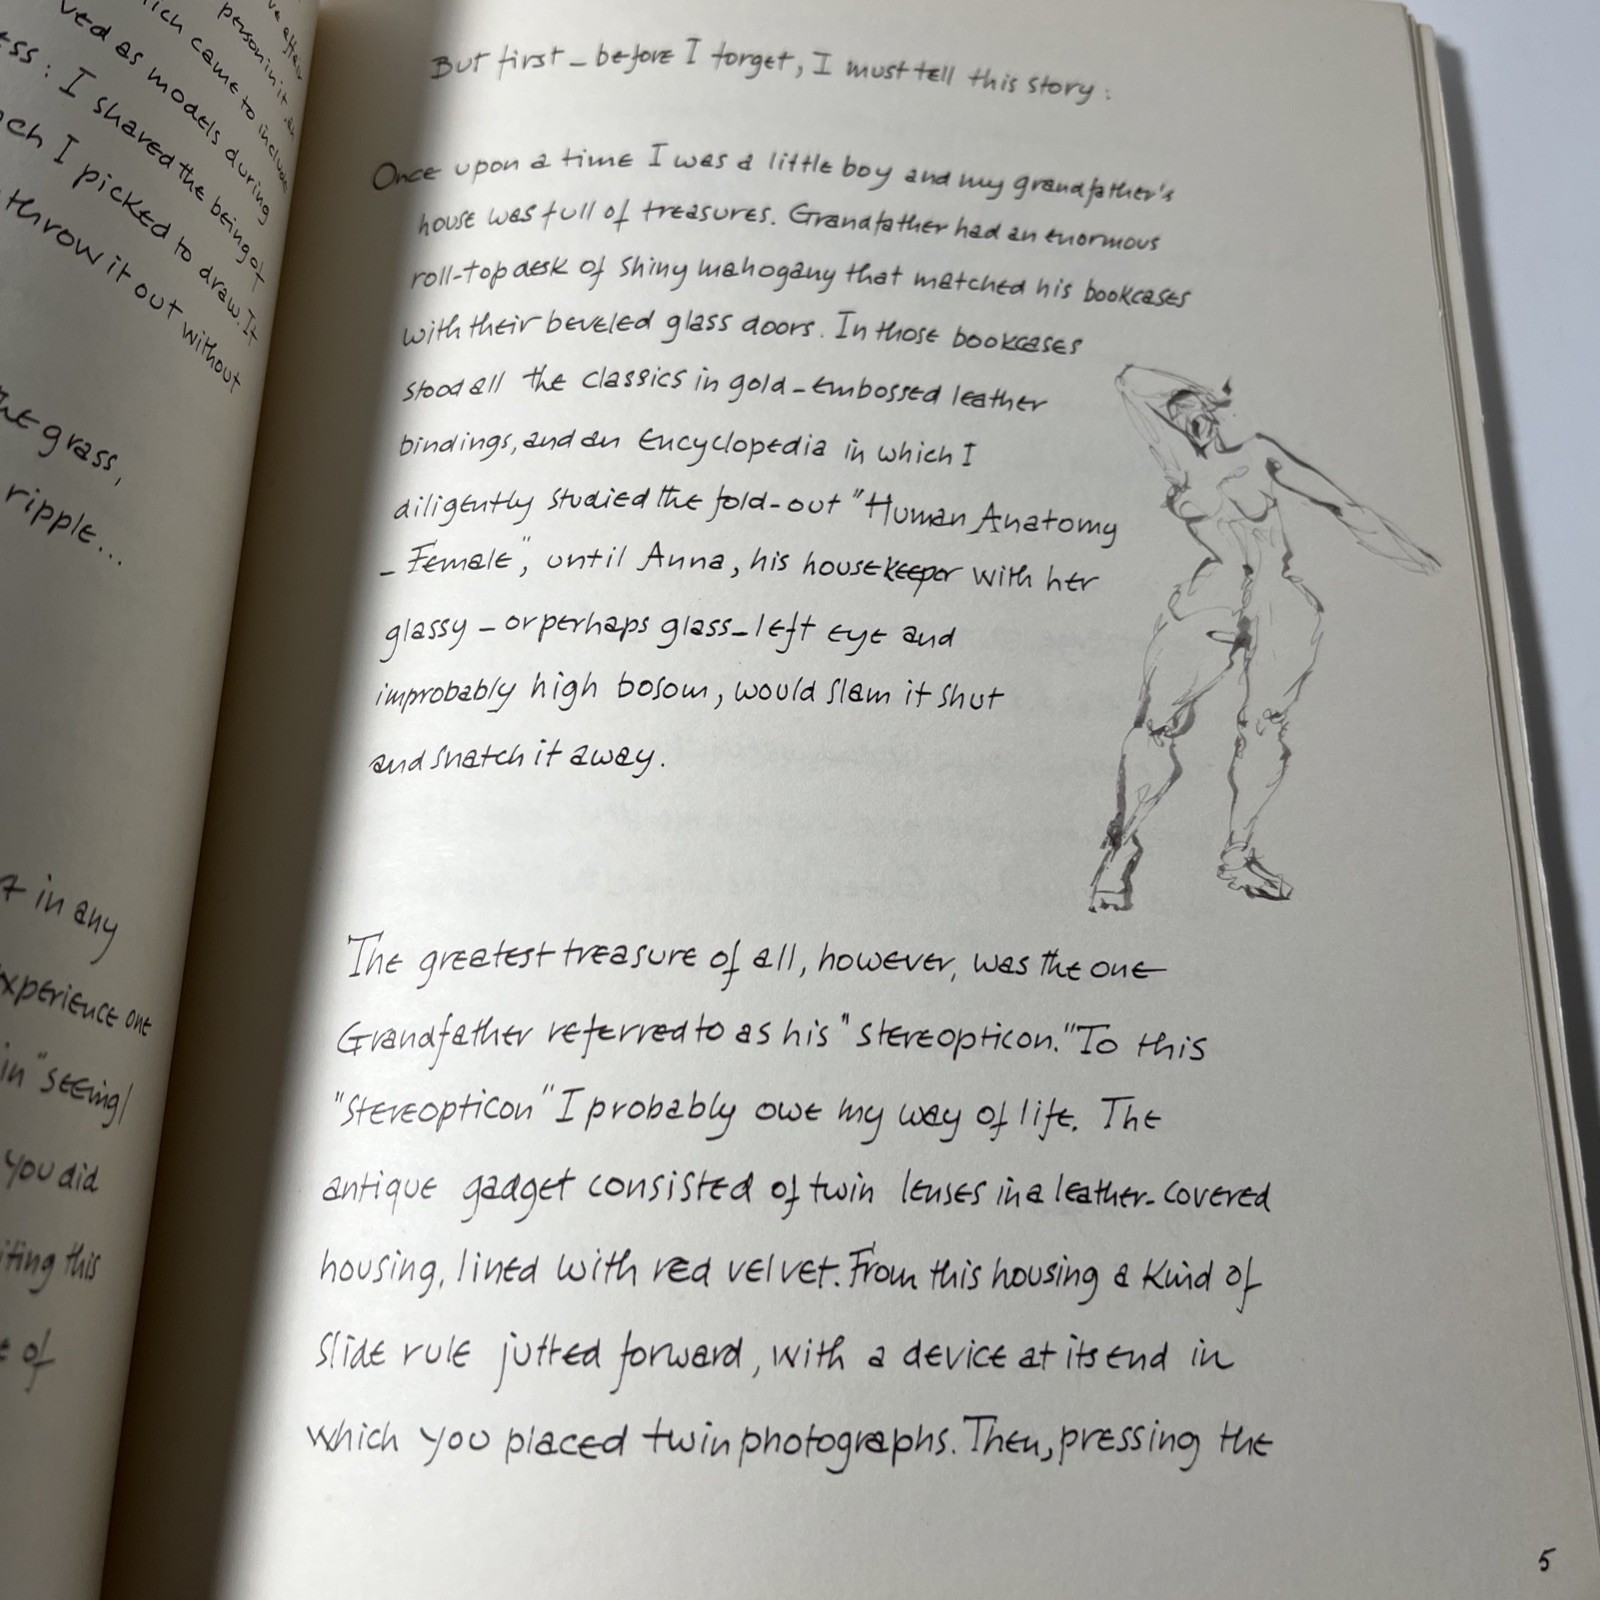 ve affair
personin it an
hich came to include
ved as models during
ess: I shared the being of
ch I picked to draw. It
throw it out without
he grass,
ripple...
in any
xperience one
in "seeing/
you did
iting this
of
But first – before I forget, I must tell this story:
Once upon a time I was a little boy and my grandfather's
house was full of treasures. Grandfather had an enormous
roll-top desk of shiny mahogany that matched his bookcases
with their beveled glass doors. In those bookcases
stood all the classics in gold-embossed leather
bindings, and an encyclopedia in which I
diligently studied the fold-out "Human Anatomy
– Female", until Anna, his housekeeper with her
glassy – or perhaps glass – left eye and
improbably high bosom, would slam it shut
and snatch it away.
The greatest treasure of all, however, was the one
Grandfather referred to as his "stereopticon." To this
"stereopticon" I probably owe my way of life. The
antique gadget consisted of twin lenses in a leather-covered
housing, lined with red velvet. From this housing a kind of
slide rule jutted forward, with a device at its end in
which you placed twin photographs. Then, pressing the
5